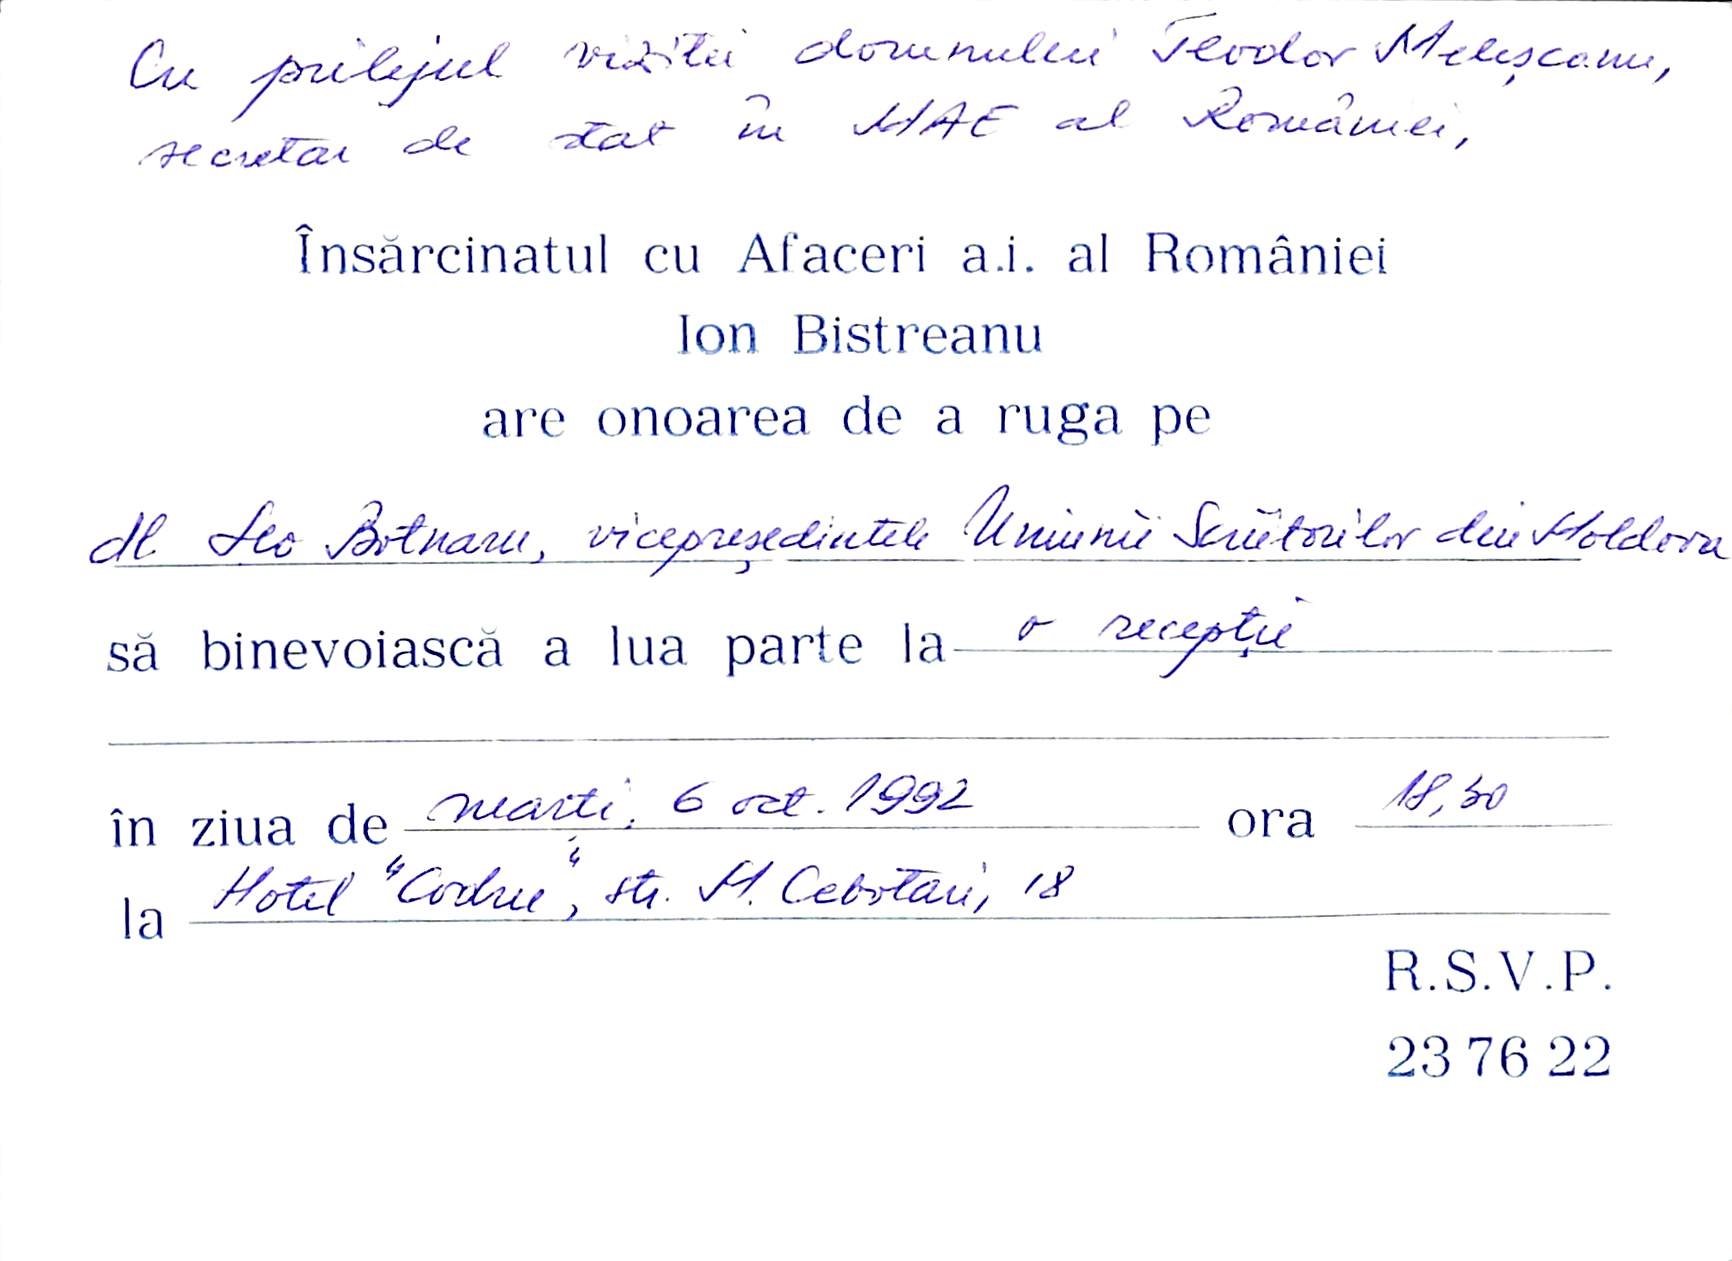 Cu prilejul vizitei domnului Teodor Meleșcanu,
secretar de stat în MAE al României,
Însărcinatul cu Afaceri a.i. al României
Ion Bistreanu
are onoarea de a ruga pe
dl Leo Botnaru, vicepreședintele Uniunii Scriitorilor din Moldova
să binevoiască a lua parte la o recepție
în ziua de marți, 6 oct. 1992 ora 18,30
la Hotel "Codru", str. M. Cebotari, 18
R.S.V.P.
23 76 22